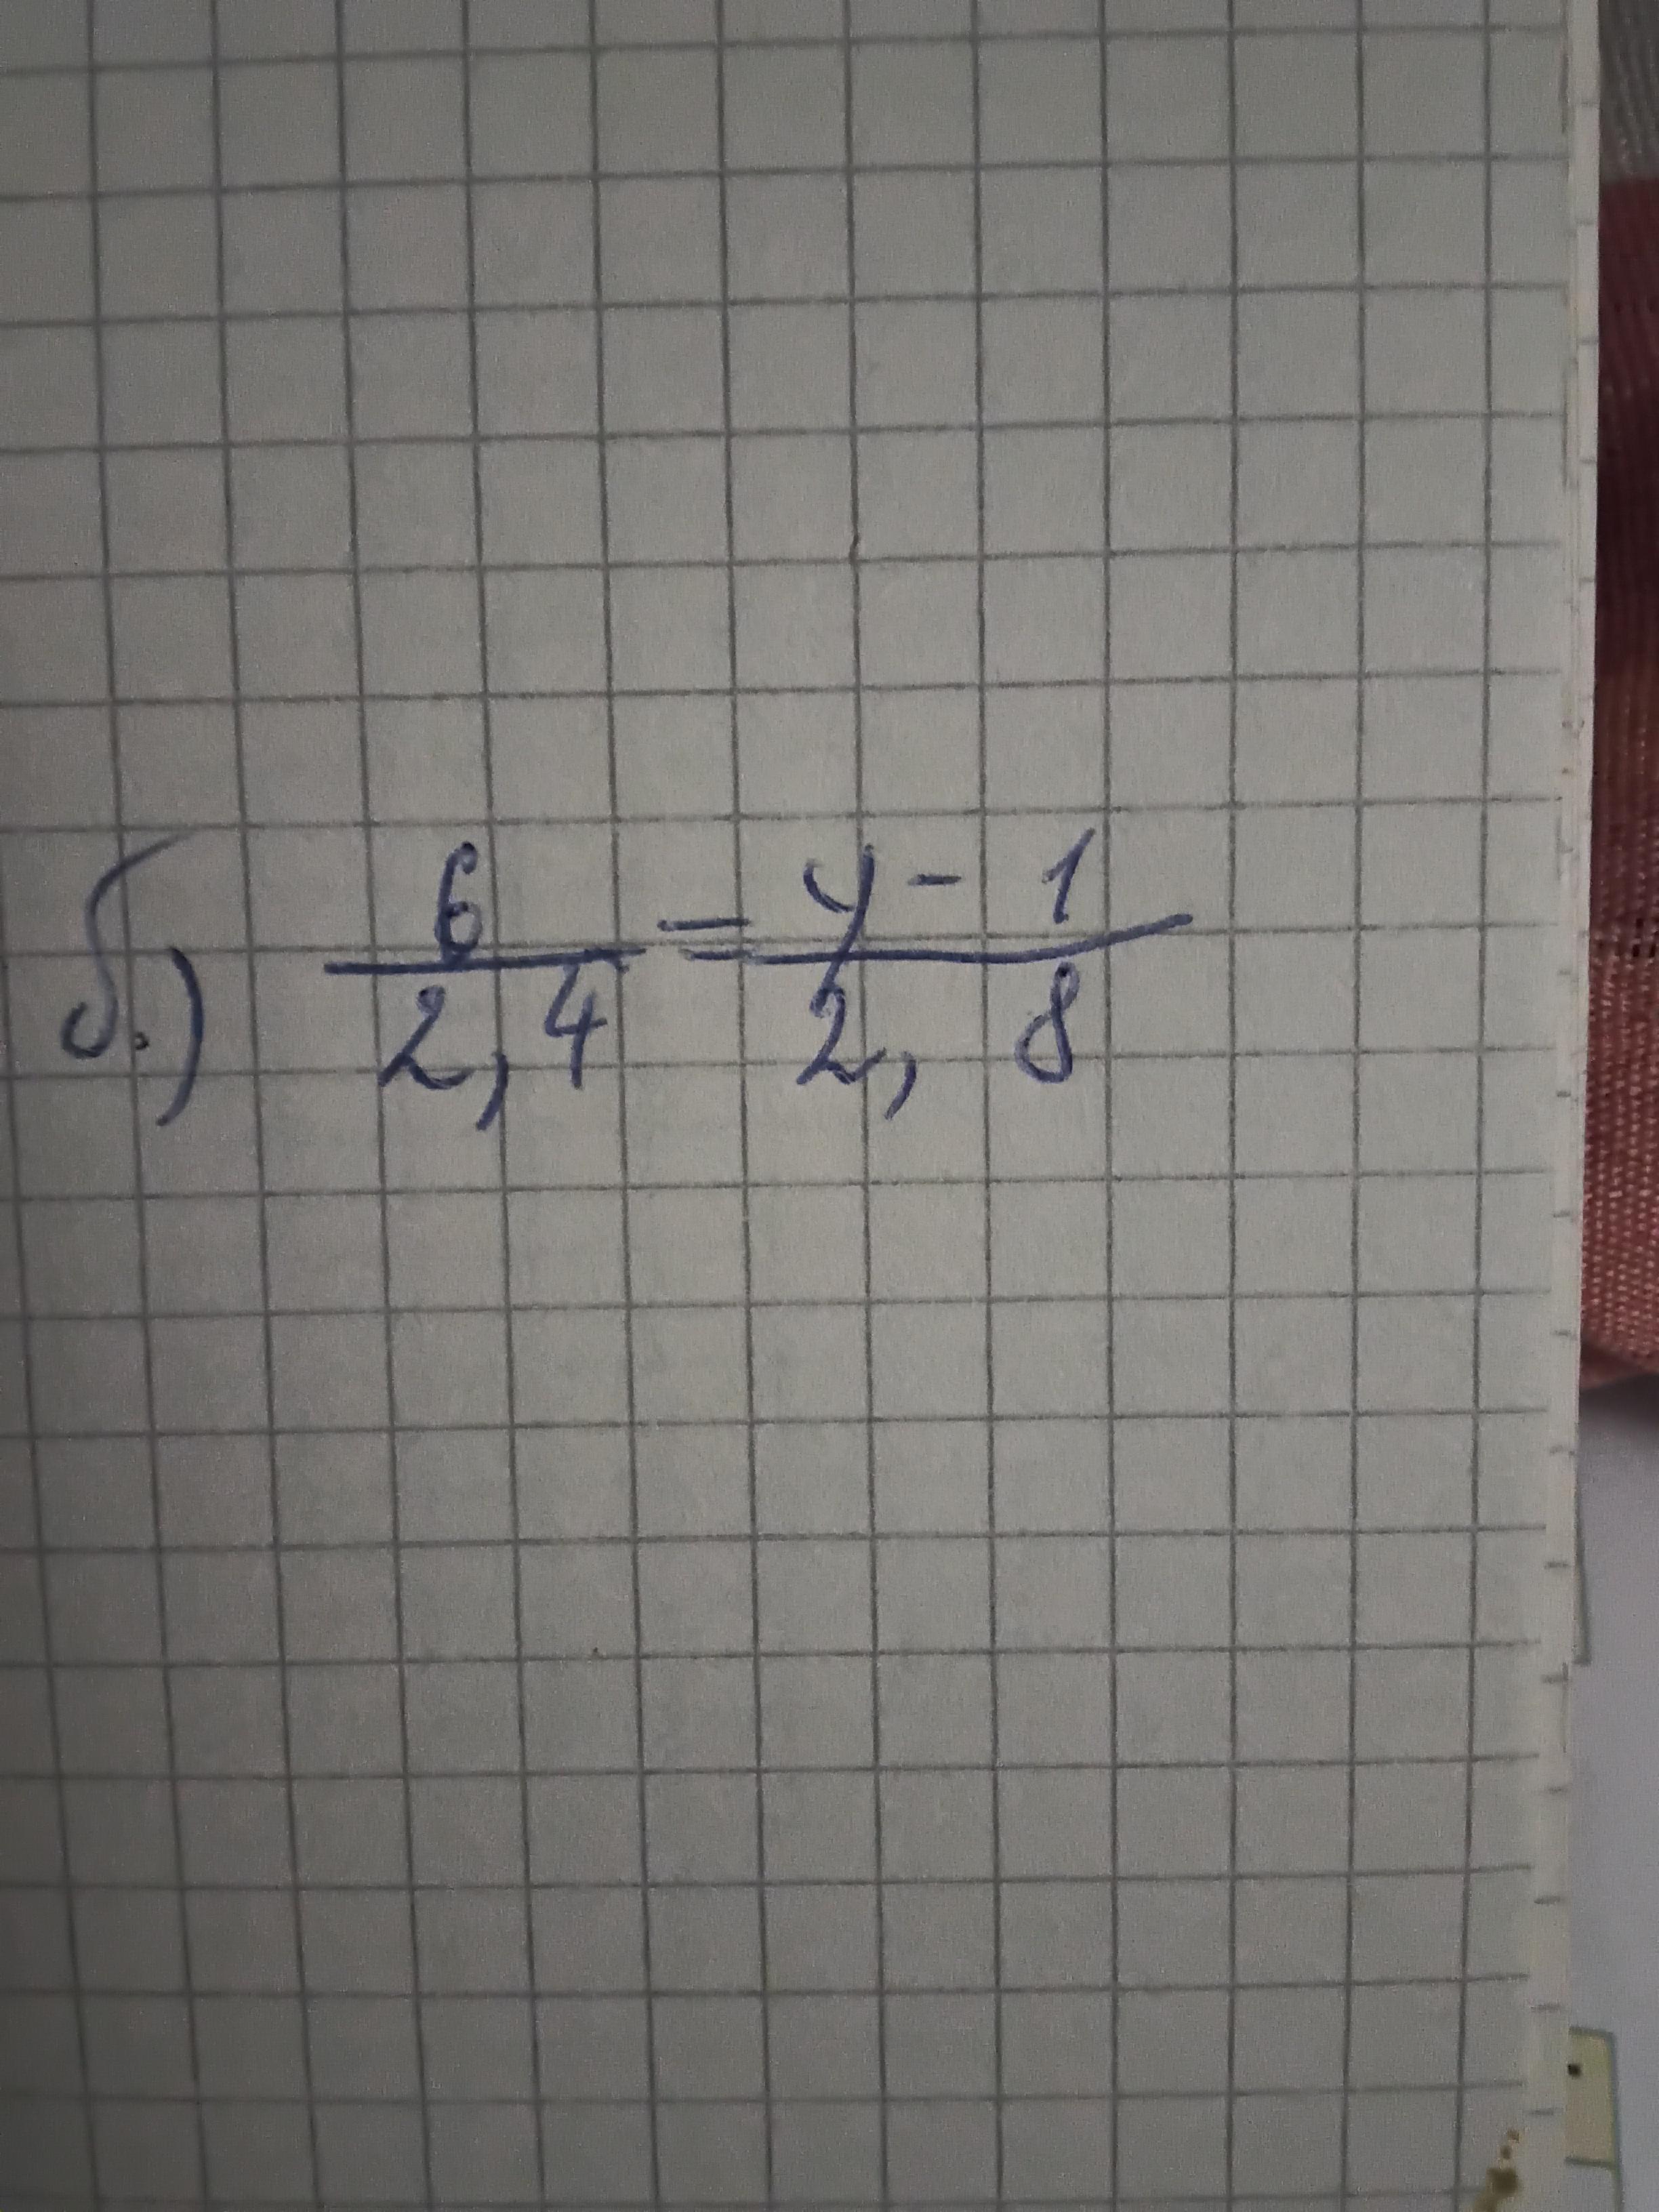 б.) 6/2,4 = y - 1/2, 8